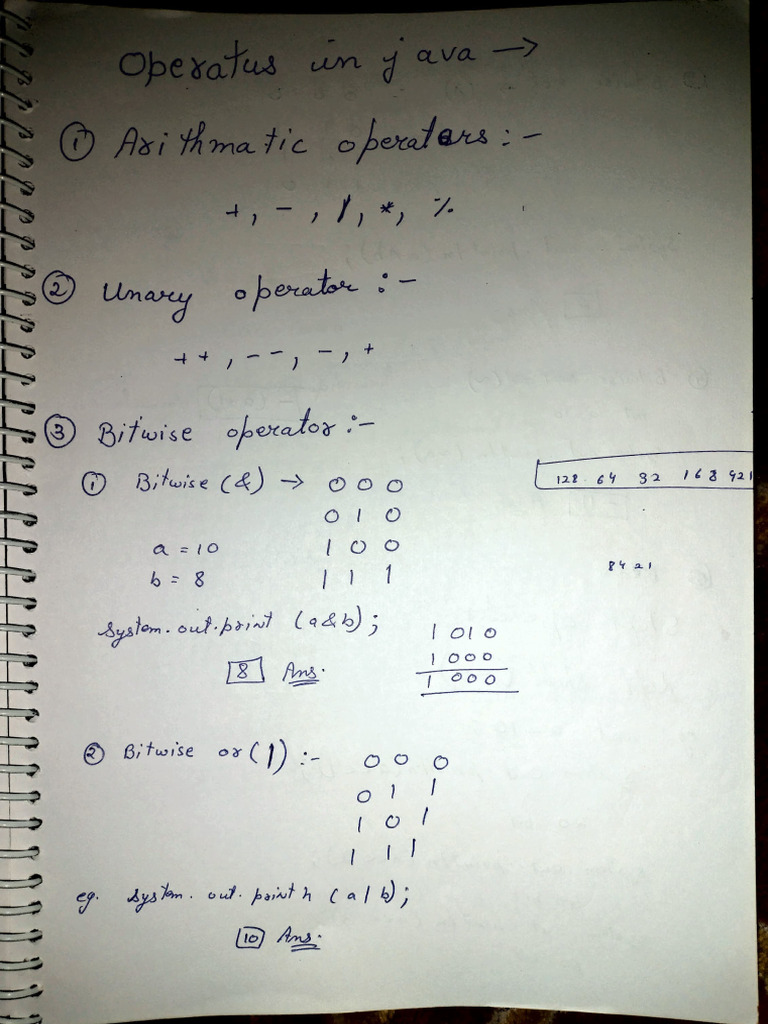 Operatus in java →
① Arithmatic operators :-
+, -, /, *, %
② Unary operator :-
++, --, -, +
③ Bitwise operator :-
① Bitwise (&) → 0 0 0
128 64 32 168421
0 1 0
a = 10 1 0 0
8421
b = 8 1 1 1
System.out.print (a&b);
1010
1000
8 Ans.
1000
② Bitwise or (|) :- 0 0 0
0 1 1
1 0 1
1 1 1
eg. System.out.println (a|b);
10 Ans.